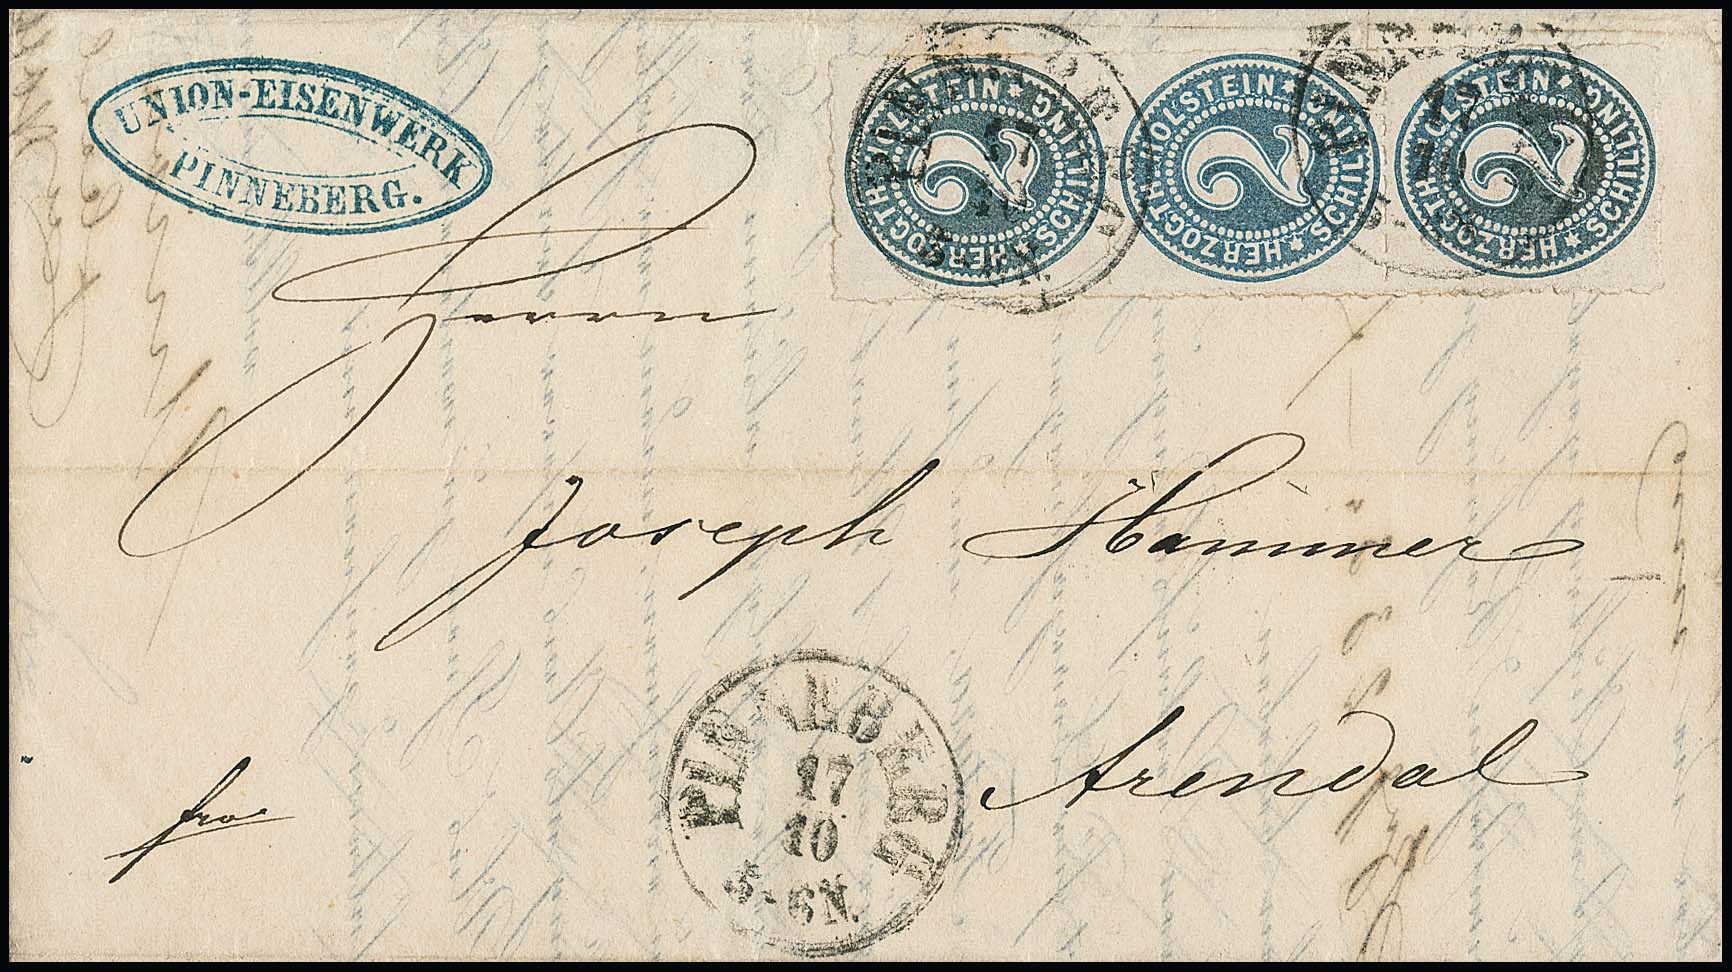 UNION-EISENWERK
PINNEBERG.
HERZOGTH. HOLSTEIN * SCHILLING *
2
HERZOGTH. HOLSTEIN * SCHILLING *
2
HERZOGTH. HOLSTEIN * SCHILLING *
2
PINNEBERG
17
10
PINNEBERG
17
10
Herrn
Joseph Hammer
Arendal
fro
PINNEBERG
17
10
5-6N.